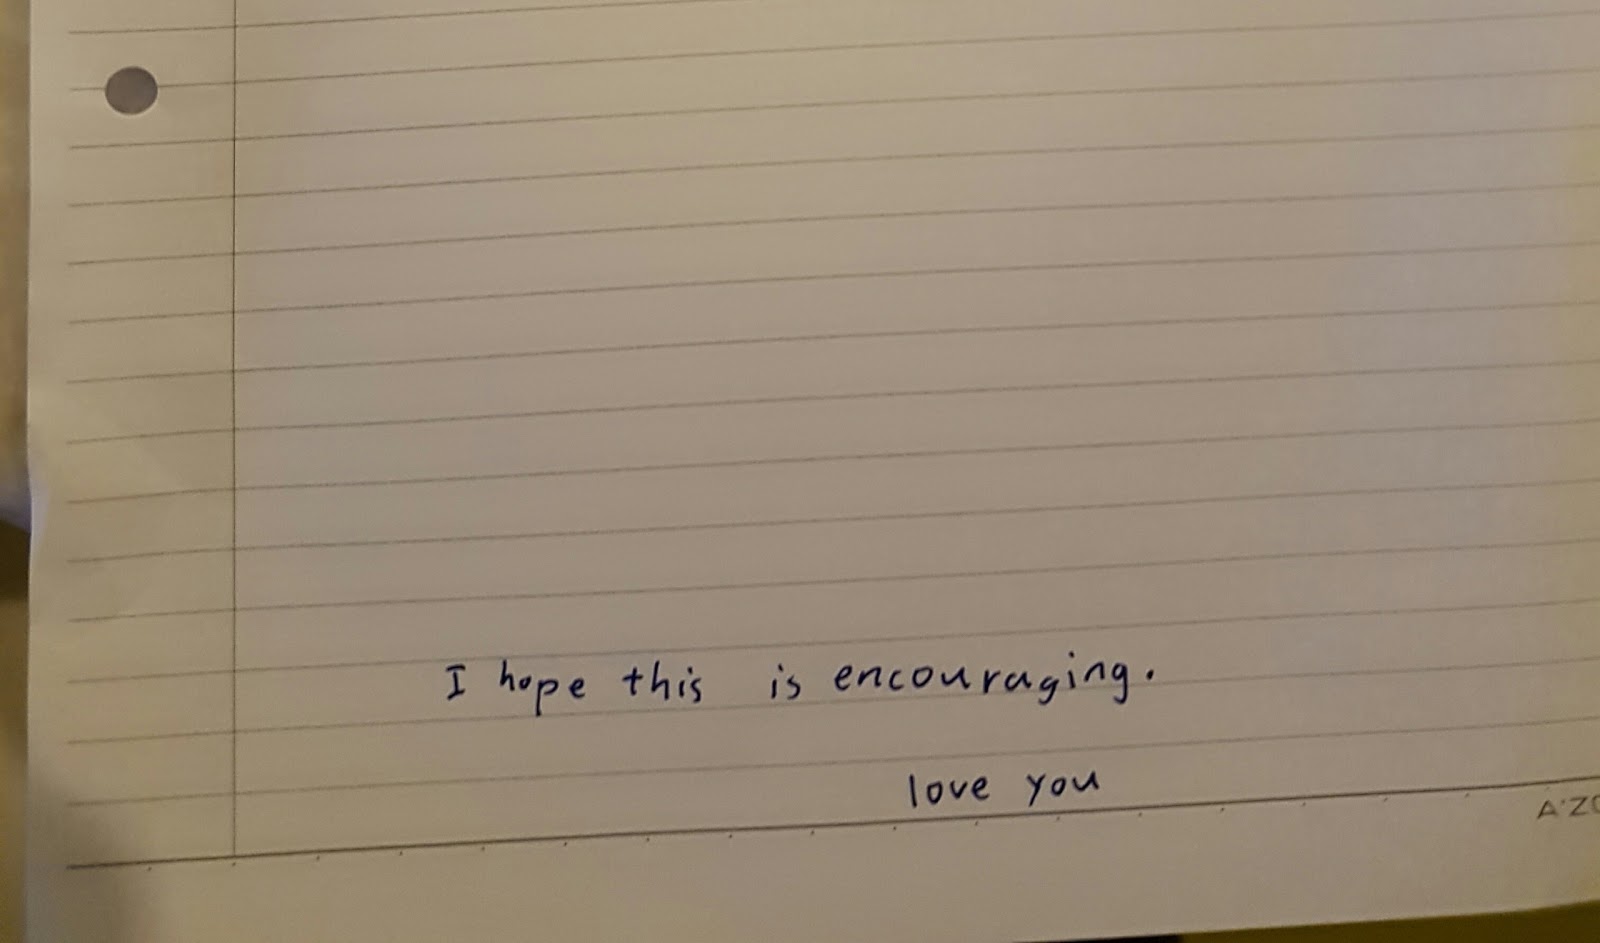 I hope this is encouraging.
love you